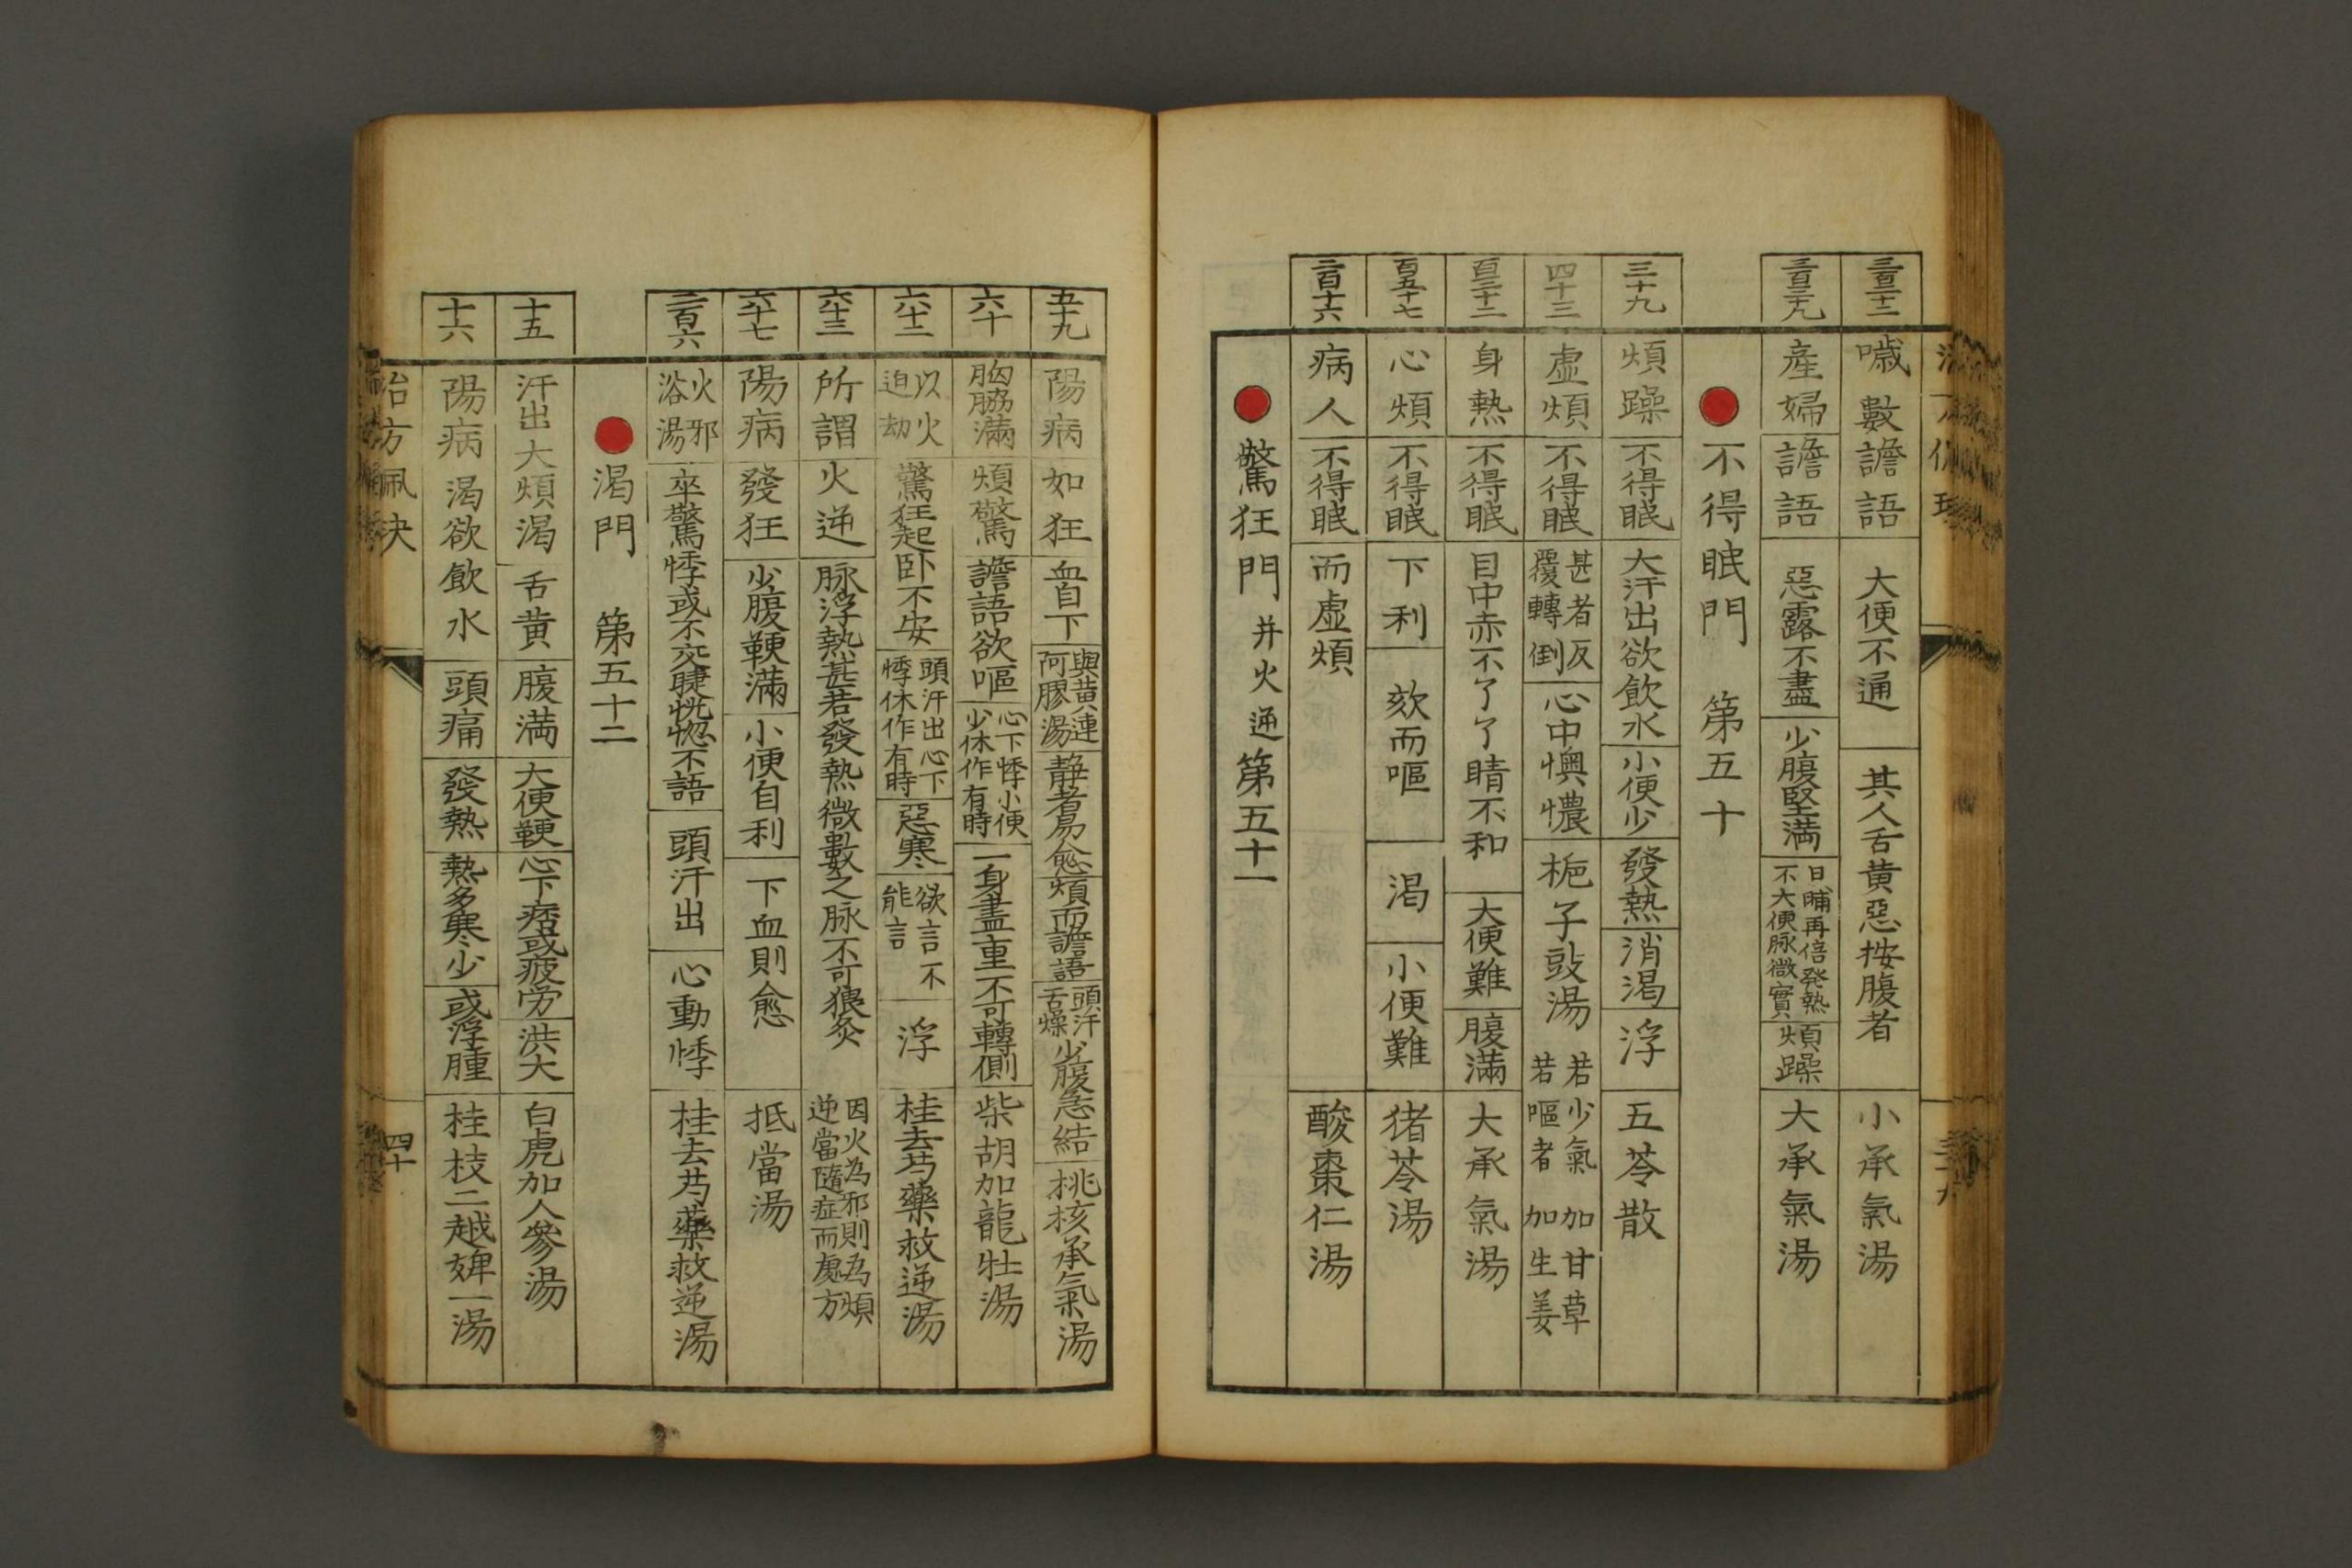 三百三十二 噦數譫語 大便不通 其人舌黄惡按腹者 小承氣湯
三百三十九 產婦 譫語 惡露不盡 少腹堅満 日晡再倍發熱不大便脉微實 煩躁 大承氣湯
不得眠門 第五十
三十九 煩躁 不得眠 大汗出欲飲水 小便少 發熱 消渴 浮 五苓散
四十三 虛煩 不得眠 甚者反覆轉倒 心中懊憹 梔子豉湯 若少氣加甘草 若嘔者加生姜
百三十二 身熱 不得眠 目中赤不了了睛不和 大便難 腹滿 大承氣湯
百五十七 心煩 不得眠 下利 欬而嘔 渴 小便難 猪苓湯
二百十六 病人 不得眠 而虛煩 酸棗仁湯
驚狂門 并火逆 第五十一
五十九 陽病 如狂 血自下 與黄連阿膠湯 静者易愈 煩而譫語 頭汗舌燥 少腹急結 桃核承氣湯
六十 胸脇滿 煩驚 譫語欲嘔 心下悸小便少休作有時 一身盡重不可轉側 柴胡加龍牡湯
六十二 以火迫劫 驚狂起卧不安 頭汗出心下悸休作有時 惡寒 欲言不能言 浮 桂去芍藥救逆湯
六十三 所謂 火逆 脉浮熱甚若發熱微數之脉不可猥灸 因火為邪則為煩逆當隨症而處方
六十七 陽病 發狂 少腹鞕滿 小便自利 下血則愈 抵當湯
二百六 火邪浴湯 卒驚悸或不交睫恍惚不語 頭汗出 心動悸 桂去芍藥救逆湯
渴門 第五十二
十五 汗出大煩渴 舌黄 腹満 大便鞕 心下痞或疲労 洪大 白虎加人參湯
十六 陽病渴欲飲水 頭痛 發熱 熱多寒少 或浮腫 桂枝二越婢一湯
治方佩決 四十